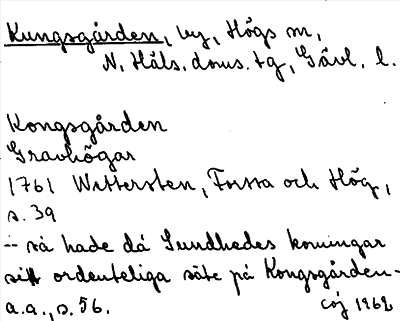 Kungsgården, by, Högs sn,
N. Häls. doms. tg, Gävl. l.
Kongsgården
Gravhögar
1761 Wettersten, Forssa och Hög,
s. 39
– så hade då Sundhedes konungar
sitt ordenteliga säte på Kongsgården –
a.a., s. 56.
1962